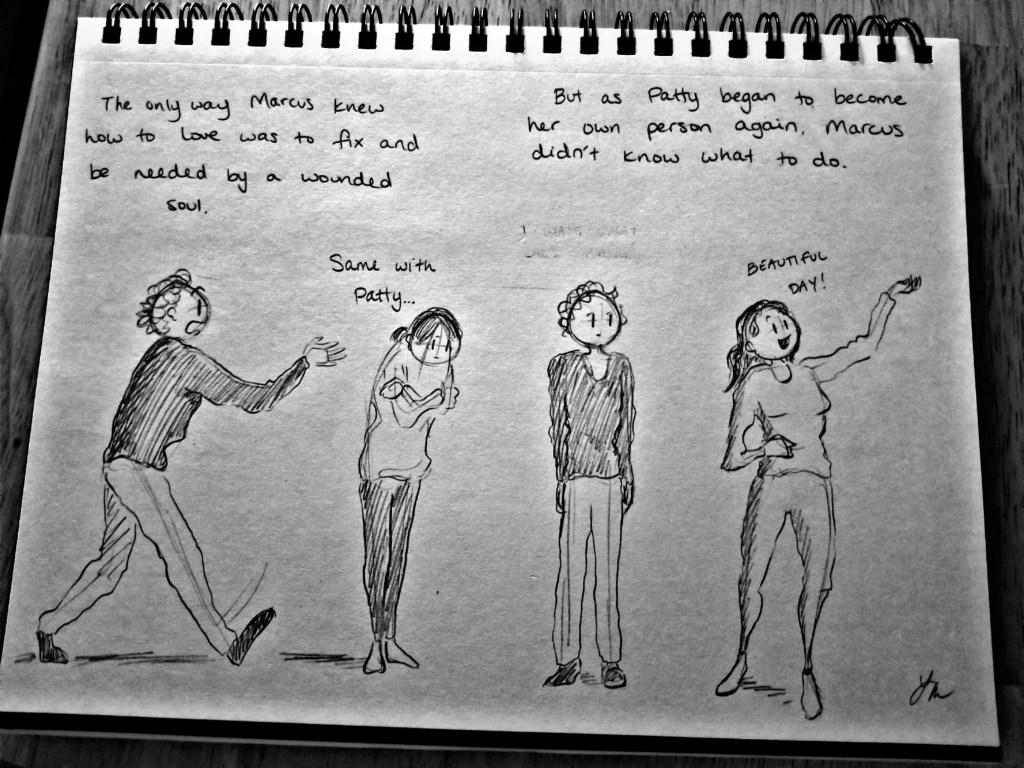 The only way Marcus knew
how to love was to fix and
be needed by a wounded
soul.
Same with
Patty...
But as Patty began to become
her own person again, Marcus
didn't know what to do.
BEAUTIFUL
DAY!